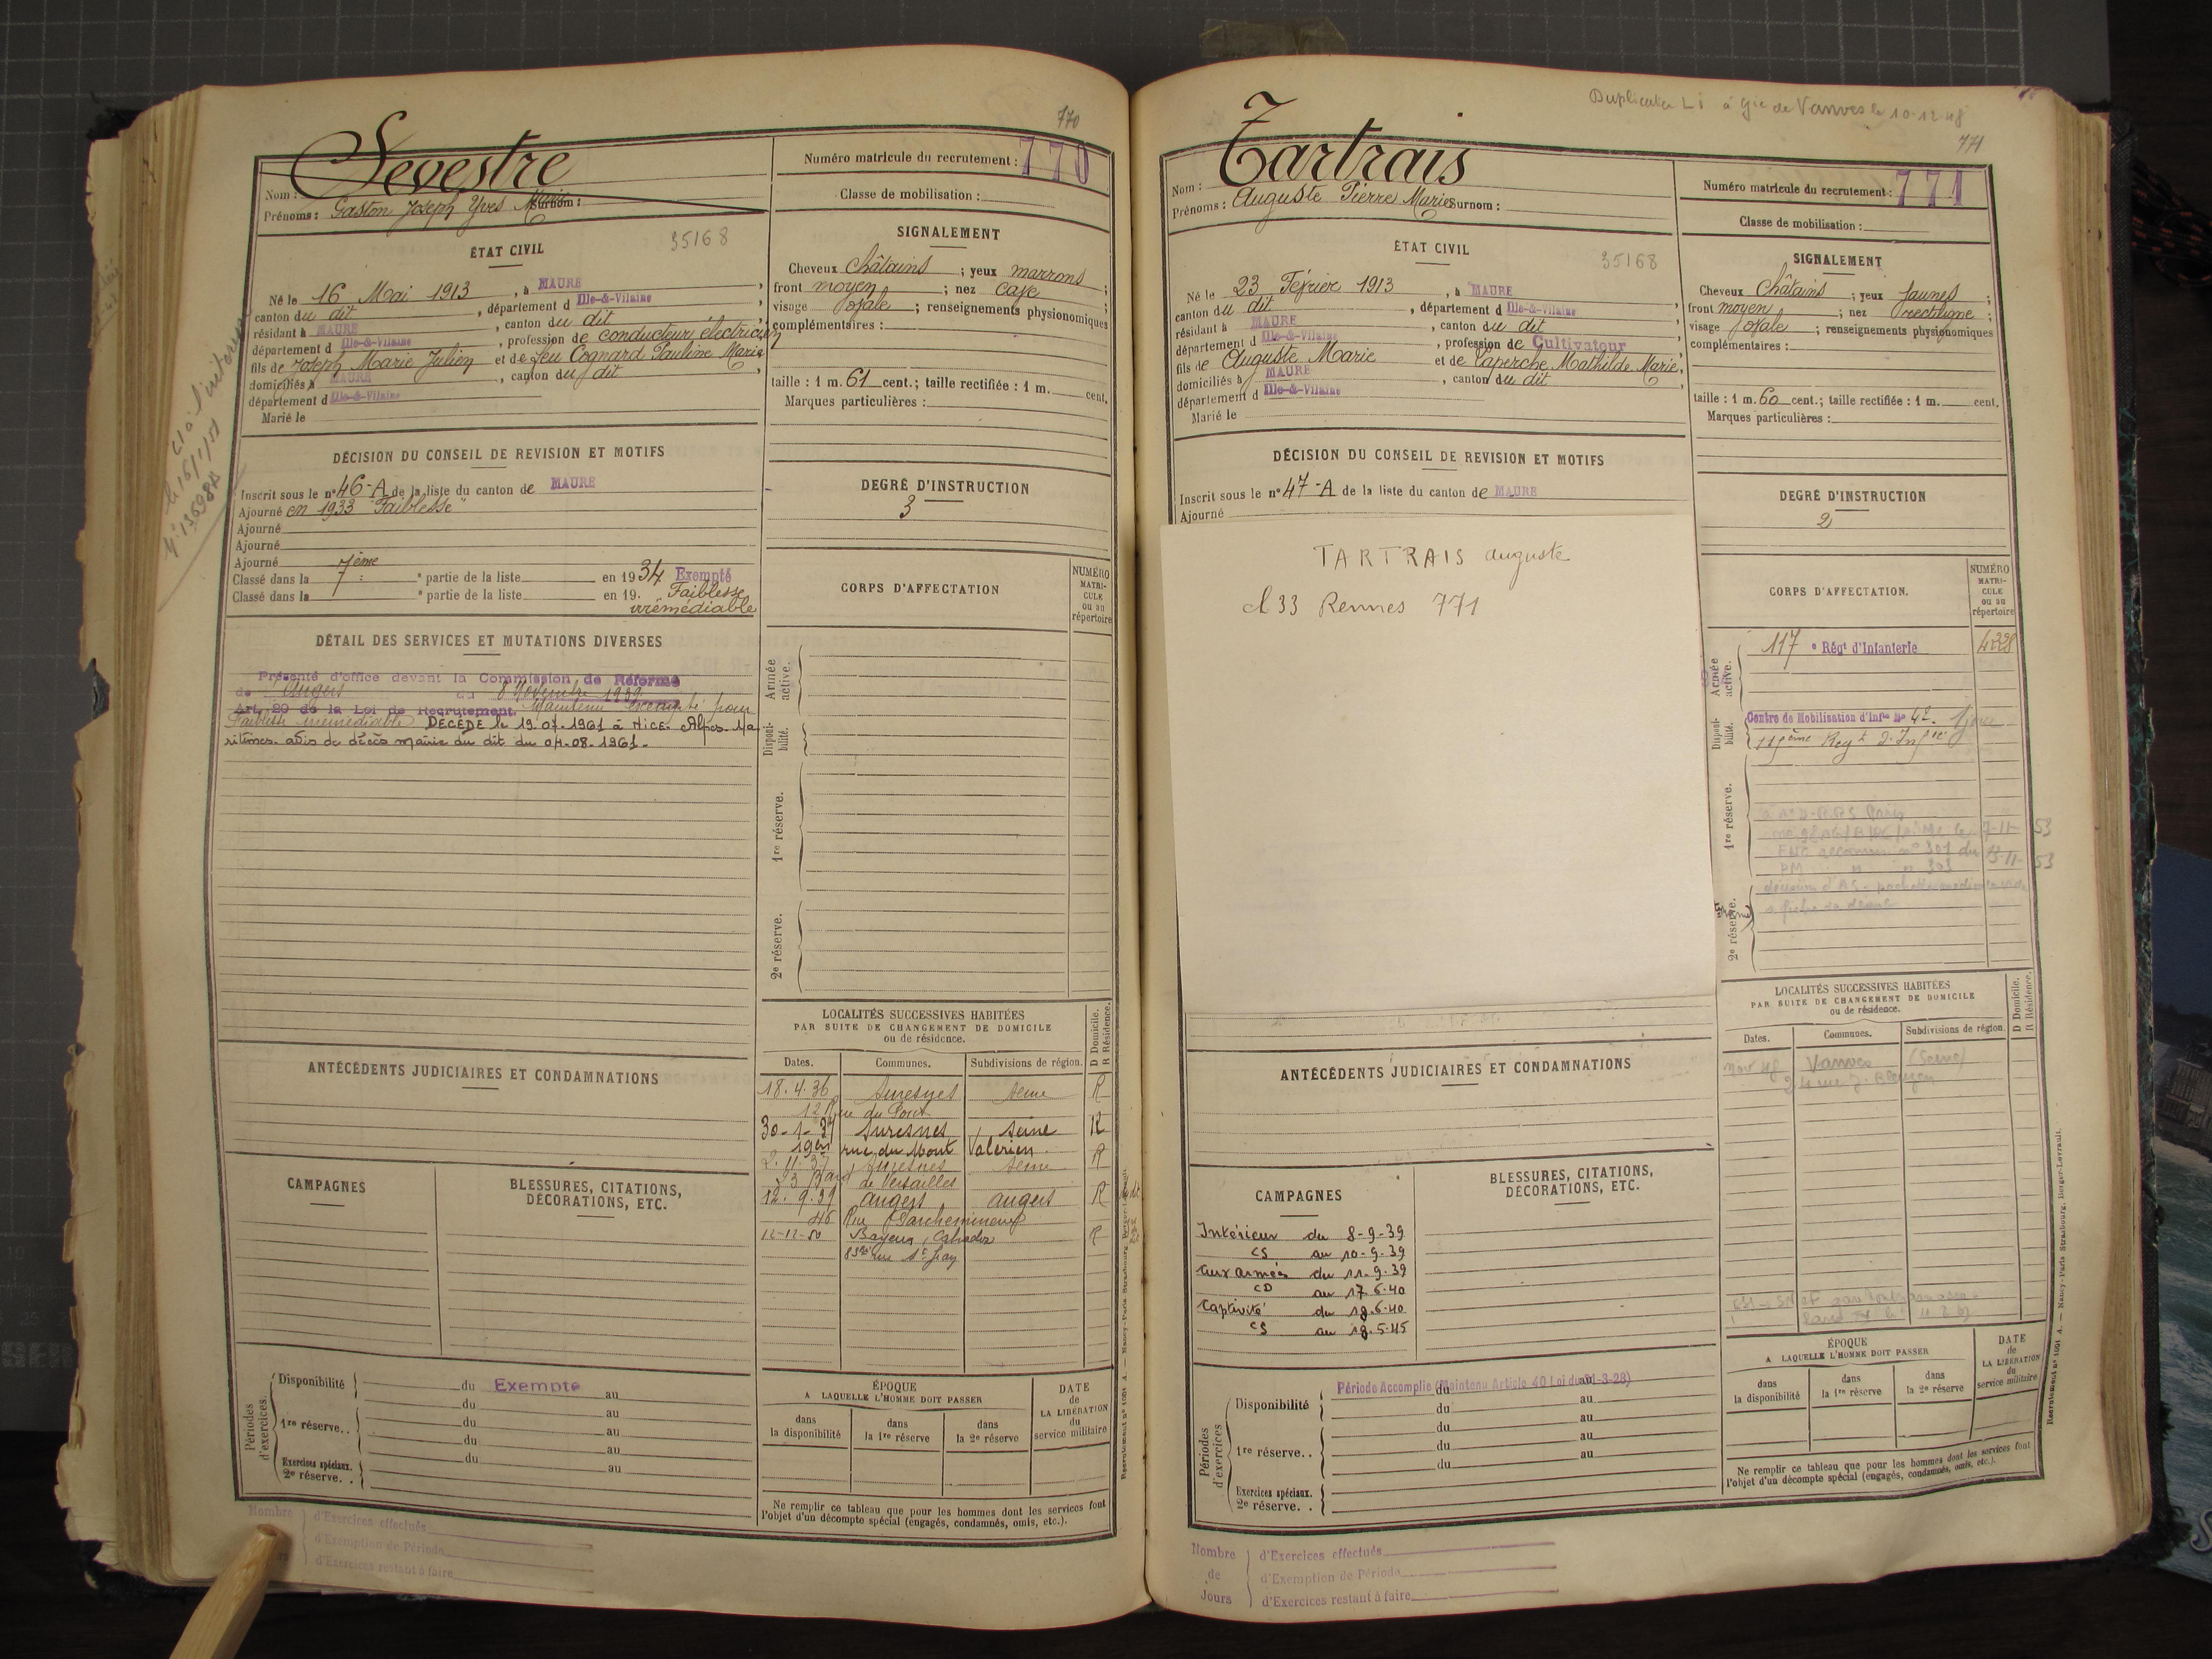 770
Sevestre
Nom :
Prénoms : Gaston Joseph Yves Marie Surnom :
Numéro matricule du recrutement : 770
Classe de mobilisation :
ÉTAT CIVIL
35168
Né le 16 Mai 1913, à MAURE
canton du dit, département d Ille-&-Vilaine
résidant à MAURE, canton du dit
département d Ille-&-Vilaine, profession de conducteur électricien
fils de Joseph Marie Julien et de feu Cognard Pauline Marie
domiciliés à MAURE, canton du dit
département d Ille-&-Vilaine
Marié le
SIGNALEMENT
Cheveux châtains ; yeux marrons
front moyen ; nez cave ;
visage ovale ; renseignements physionomiques
complémentaires :
taille : 1 m. 61 cent.; taille rectifiée : 1 m. cent.
Marques particulières :
DÉCISION DU CONSEIL DE REVISION ET MOTIFS
Inscrit sous le n° 46-A de la liste du canton de MAURE
Ajourné en 1933 "Faiblesse"
Ajourné
Ajourné
Ajourné
Classé dans la 7ème partie de la liste en 1934 Exempté
Classé dans la e partie de la liste en 19. Faiblesse
irrémédiable
DEGRÉ D'INSTRUCTION
3
CORPS D'AFFECTATION
NUMÉRO MATRICULE ou au répertoire
Armée active.
Disponibilité.
1re réserve.
2e réserve.
DÉTAIL DES SERVICES ET MUTATIONS DIVERSES
Présenté d'office devant la Commission de Réforme
de Angers du 8 Novembre 1939
Art. 20 de la Loi de Recrutement. Maintenu exempté pour
Faiblesse irrémédiable DÉCÉDÉ le 19.07.1961 à NICE. Alpes-Ma
ritimes. avis de décès mairie du dit du 04-08-1961.
LOCALITÉS SUCCESSIVES HABITÉES
PAR SUITE DE CHANGEMENT DE DOMICILE
ou de résidence.
Dates. Communes. Subdivisions de région.
D Domicile. R Résidence.
18.4.36 Suresnes Seine R
12 Rue du Pont
30-1-37 Suresnes Seine R
19 rue du Mont Valérien
2.11.37 Suresnes Seine R
Bard de Versailles
12.9.39 Angers Angers R
46 Rue Parcheminerie
12-12-50 Bayeux, Calvados R
rue St Jean
ANTÉCÉDENTS JUDICIAIRES ET CONDAMNATIONS
CAMPAGNES
BLESSURES, CITATIONS,
DÉCORATIONS, ETC.
Périodes d'exercices.
Disponibilité du Exempté au
du au
1re réserve. . du au
du au
du au
Exercices spéciaux.
2e réserve. .
ÉPOQUE
A LAQUELLE L'HOMME DOIT PASSER
dans la disponibilité
dans la 1re réserve
dans la 2e réserve
DATE de LA LIBÉRATION du service militaire
Ne remplir ce tableau que pour les hommes dont les services font
l'objet d'un décompte spécial (engagés, condamnés, omis, etc.).
Nombre
d'Exercices effectués
d'Exemption de Période
d'Exercices restant à faire
Duplicata L i à Gie de Vanves le 10-12-48
771
Tartrais
Nom :
Prénoms : Auguste Pierre Marie Surnom :
Numéro matricule du recrutement : 771
Classe de mobilisation :
ÉTAT CIVIL
35168
Né le 23 Février 1913, à MAURE
canton du dit, département d Ille-&-Vilaine
résidant à MAURE, canton du dit
département d Ille-&-Vilaine, profession de Cultivateur
fils de Auguste Marie et de Laperche Mathilde Marie,
domiciliés à MAURE, canton du dit
département d Ille-&-Vilaine
Marié le
SIGNALEMENT
Cheveux Châtains ; yeux jaunes ;
front moyen ; nez rectiligne ;
visage ovale ; renseignements physionomiques
complémentaires :
taille : 1 m. 60 cent.; taille rectifiée : 1 m. cent.
Marques particulières :
DÉCISION DU CONSEIL DE REVISION ET MOTIFS
Inscrit sous le n° 47-A de la liste du canton de MAURE
Ajourné
TARTRAIS auguste
cl 33 Rennes 771
DEGRÉ D'INSTRUCTION
2
CORPS D'AFFECTATION.
NUMÉRO MATRICULE ou au répertoire
Armée active.
117e Régt d'Infanterie 4238
Disponibilité.
Centre de Mobilisation d'Infie No 42.
115ème Regt d'Infie
1re réserve.
2e réserve.
LOCALITÉS SUCCESSIVES HABITÉES
PAR SUITE DE CHANGEMENT DE DOMICILE
ou de résidence.
Dates. Communes. Subdivisions de région.
D Domicile. R Résidence.
Nov 48 Vanves (Seine)
ANTÉCÉDENTS JUDICIAIRES ET CONDAMNATIONS
CAMPAGNES
BLESSURES, CITATIONS,
DÉCORATIONS, ETC.
Intérieur du 8-9-39
CS au 10-9-39
aux armées du 11-9-39
CD au 17.6.40
Captivité du 18.6.40
CS au 18.5.45
Périodes d'exercices
Période Accomplie (Maintenu Article 40 Loi du 31-3-28)
Disponibilité du au
du au
1re réserve. . du au
du au
du au
Exercices spéciaux.
2e réserve. .
ÉPOQUE
A LAQUELLE L'HOMME DOIT PASSER
dans la disponibilité
dans la 1re réserve
dans la 2e réserve
DATE de LA LIBÉRATION du service militaire
Ne remplir ce tableau que pour les hommes dont les services font
l'objet d'un décompte spécial (engagés, condamnés, omis, etc.).
Recrutement n° 1001 A. — Nancy-Paris Strasbourg, Berger-Levrault.
Nombre de Jours
d'Exercices effectués
d'Exemption de Période
d'Exercices restant à faire